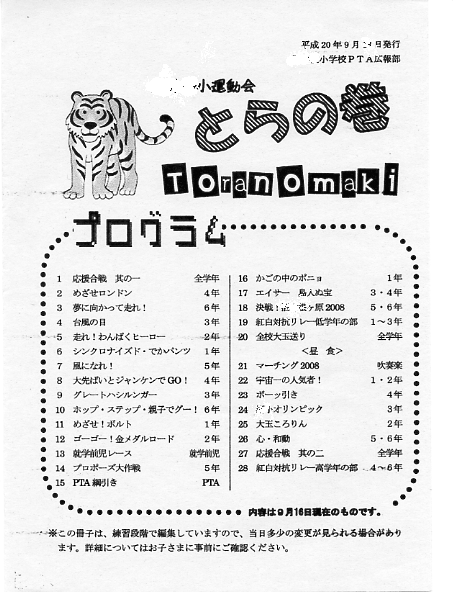 平成20年9月 日発行
小学校PTA広報部
小運動会
とらの巻
Toranomaki
プログラム
1 応援合戦 其の一 全学年
2 めざせロンドン 4年
3 夢に向かって走れ! 6年
4 台風の目 3年
5 走れ!わんぱくヒーロー 2年
6 シンクロナイズド・でかパンツ 1年
7 風になれ! 5年
8 大先ぱいとジャンケンでGO! 4年
9 グレートハシルンガー 3年
10 ホップ・ステップ・親子でグー! 6年
11 めざせ!ボルト 1年
12 ゴーゴー!金メダルロード 2年
13 就学前児レース 就学前児
14 プロポーズ大作戦 5年
15 PTA綱引き PTA
16 かごの中のポニョ 1年
17 エイサー 島人ぬ宝 3・4年
18 決戦! ヶ原2008 5・6年
19 紅白対抗リレー低学年の部 1~3年
20 全校大玉送り 全学年
<昼 食>
21 マーチング2008 吹奏楽
22 宇宙一の人気者! 1・2年
23 ボーッ引き 4年
24 オリンピック 3年
25 大玉ころりん 2年
26 心・和動 5・6年
27 応援合戦 其の二 全学年
28 紅白対抗リレー高学年の部 4~6年
内容は9月16日現在のものです。
※この冊子は、練習段階で編集していますので、当日多少の変更が見られる場合があり
ます。詳細についてはお子さまに事前にご確認ください。